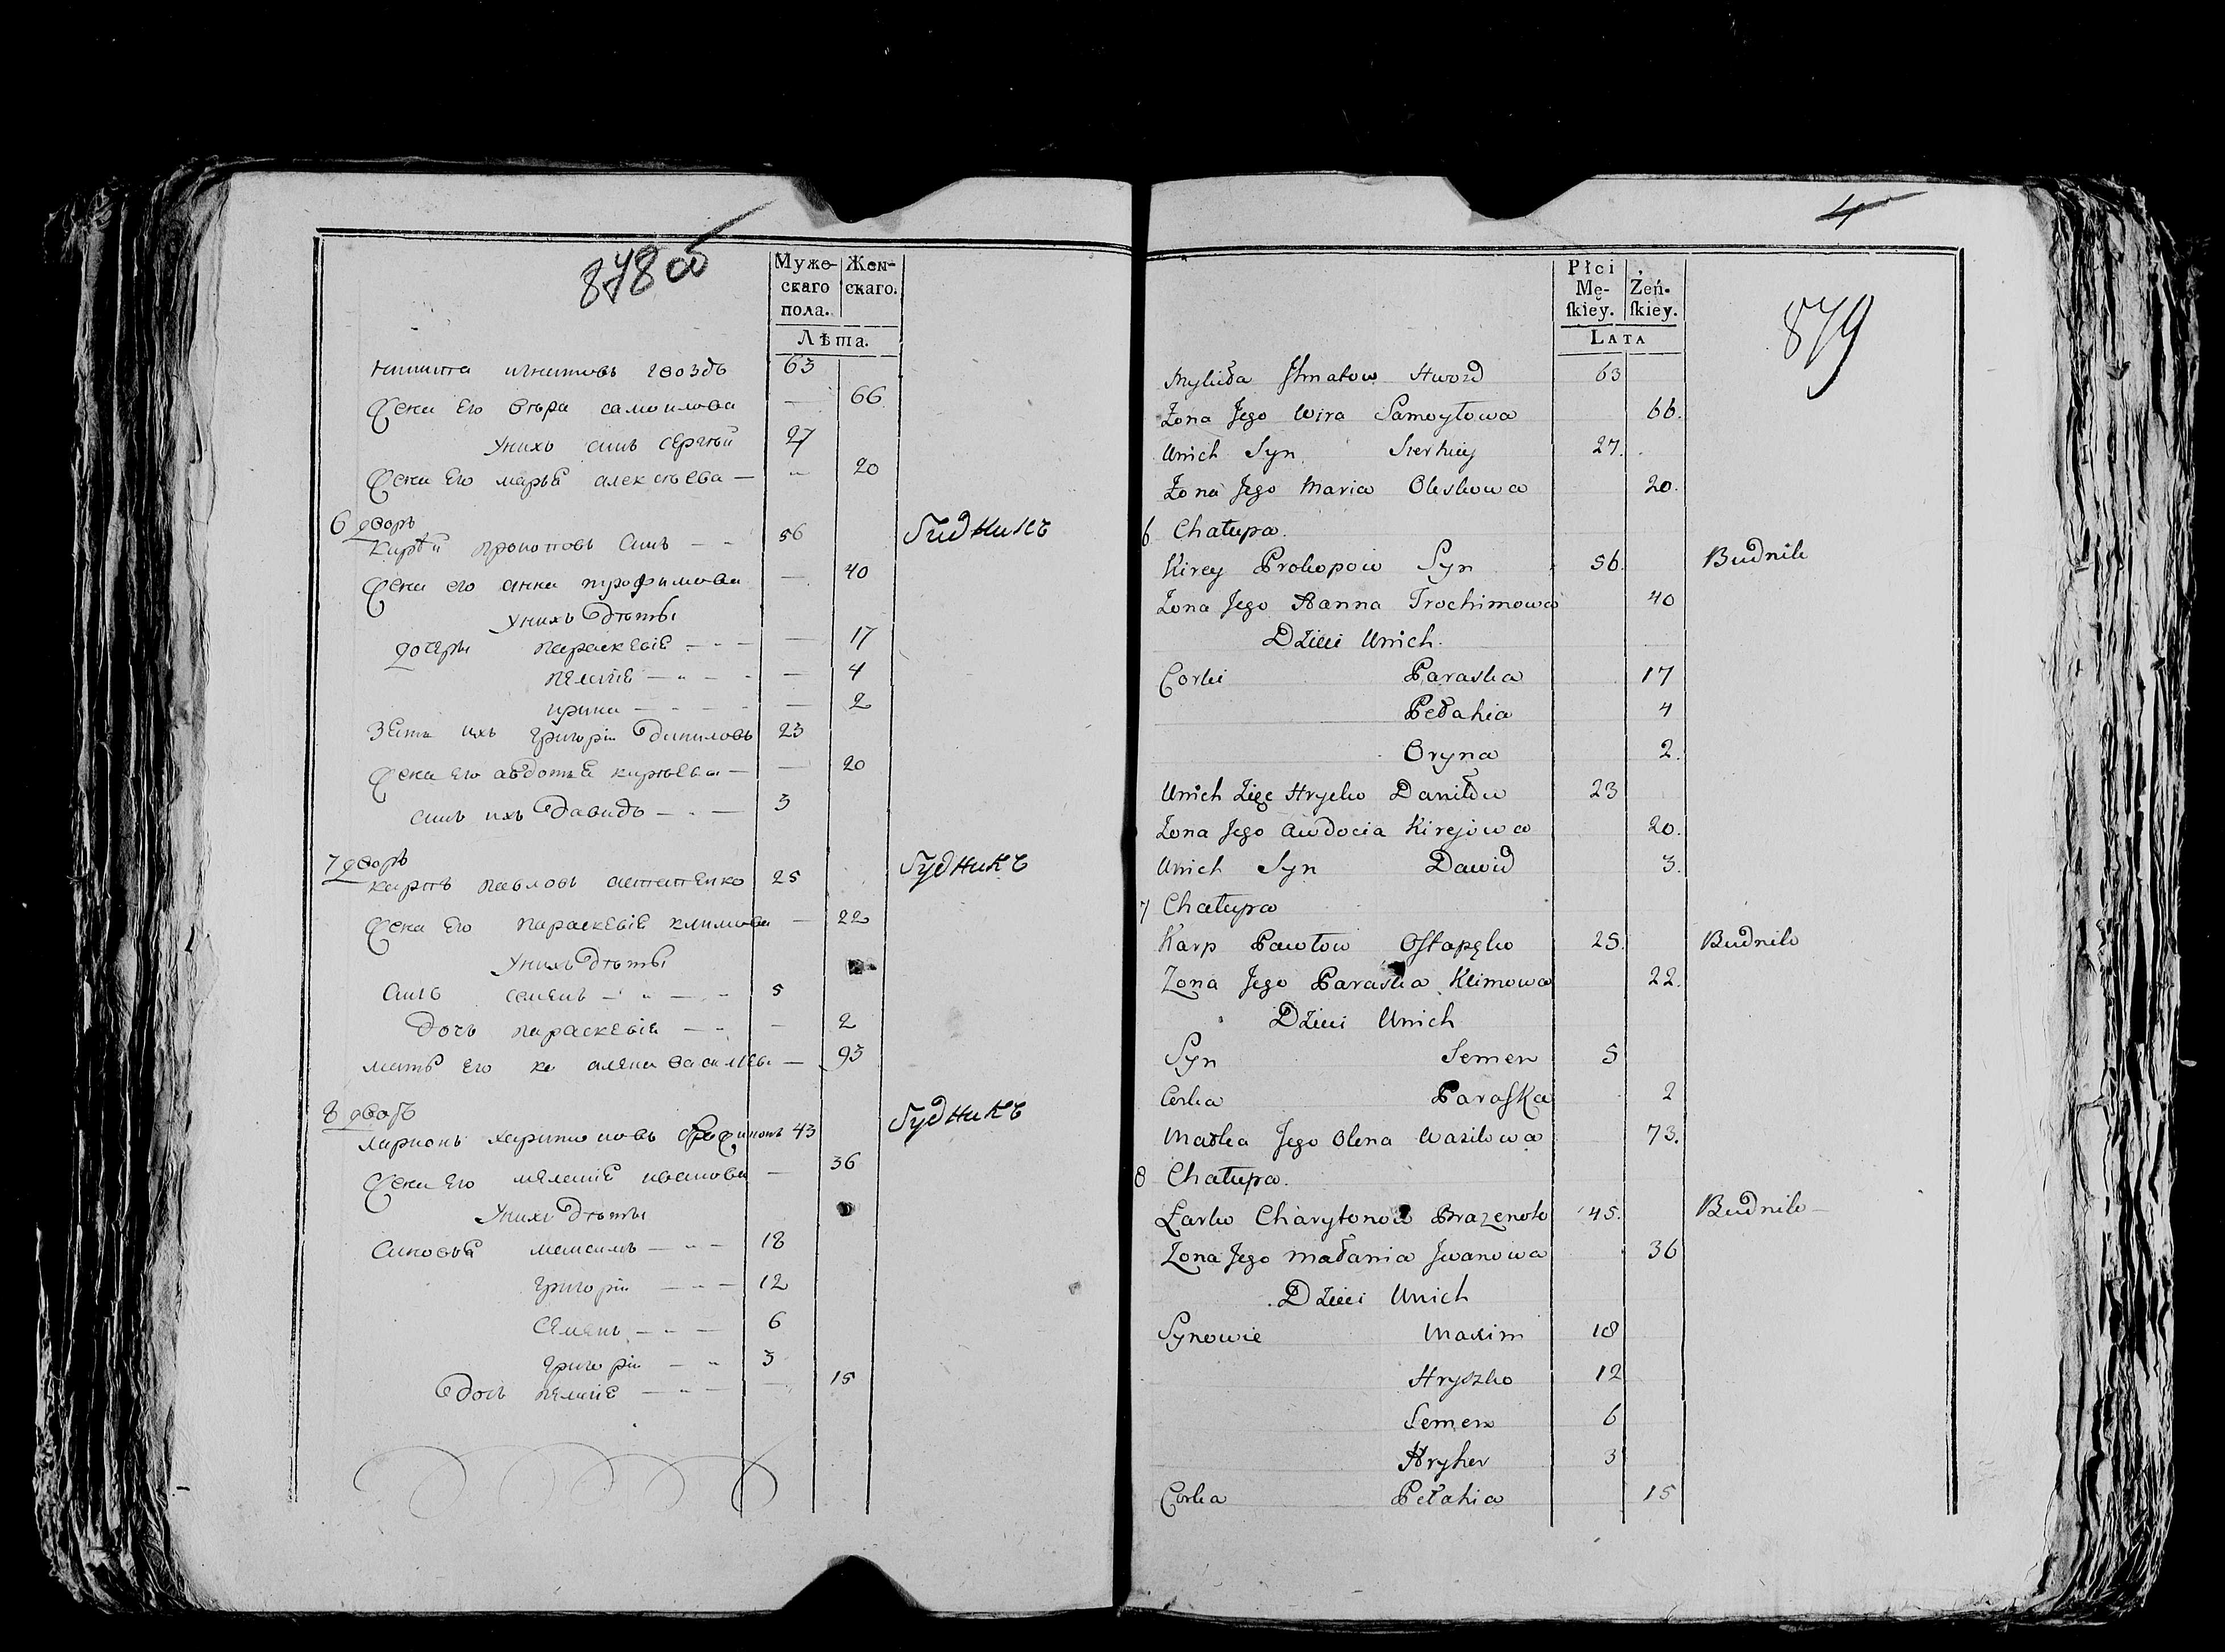 878 об
Муже- Жен-
скаго скаго.
пола.
Лѣта.
никита игнатовъ гвоздь 63
жена его вѣра самоилова — 66
у нихъ синъ сергѣй 27
жена его марья алексѣева — 20
6 дворъ
кирѣй прокоповъ синъ — 56 Будникъ
жена его анна трофимова — 40
у нихъ дѣты
дочеры параскевія — 17
пелагія — 4
ирина — 2
зять ихъ григорій даниловъ 23
жена его авдотья кирѣева — 20
синъ ихъ давидъ — 3
7 дворъ
карпъ павловъ астапенко 25 Будникъ
жена его параскевія климова — 22
у нихъ дѣты
синъ семенъ — 5
дочь параскевія — 2
мать его алена василева — 93
8 дворъ
ларионъ харитоновъ 43 Будникъ
жена его меланія иванова — 36
у нихъ дѣты
синовья максимъ — 18
григорій — 12
семенъ — 6
григорій — 3
дочь пелагія — 15
4
879
Płci Żeń-
Mę- ſkiey.
ſkiey.
LATA
Mykita Hnatow Hwozd 63
Zona Jego Wira Samoyłowa 66.
Unich Syn Sierhiey 27.
Zona Jego Maria Oleskowa 20.
6 Chałupa.
Kirey Prokopow Syn 56. Budnik
Zona Jego Hanna Trochimowa 40
Dzieci Unich.
Corki Paraska 17
Pełahia 4
Oryna 2.
Unich Zięc Hrycko Daniłow 23
Zona Jego Awdocia Kirejowa 20.
Unich Syn Dawid 3.
7 Chałupa
Karp Pawłow Ostapęko 25. Budnik
Zona Jego Paraska Klimowa 22.
Dzieci Unich
Syn Semen 5
Corka Paraska 2
Matka Jego Olena Wasilowa 73.
8 Chałupa.
Łarko Charytonow 45. Budnik
Zona Jego Małania Jwanowa 36
Dzieci Unich
Synowie Maxim 18
Hryszko 12
Semen 6
Hryher 3
Corka Pełahia 15